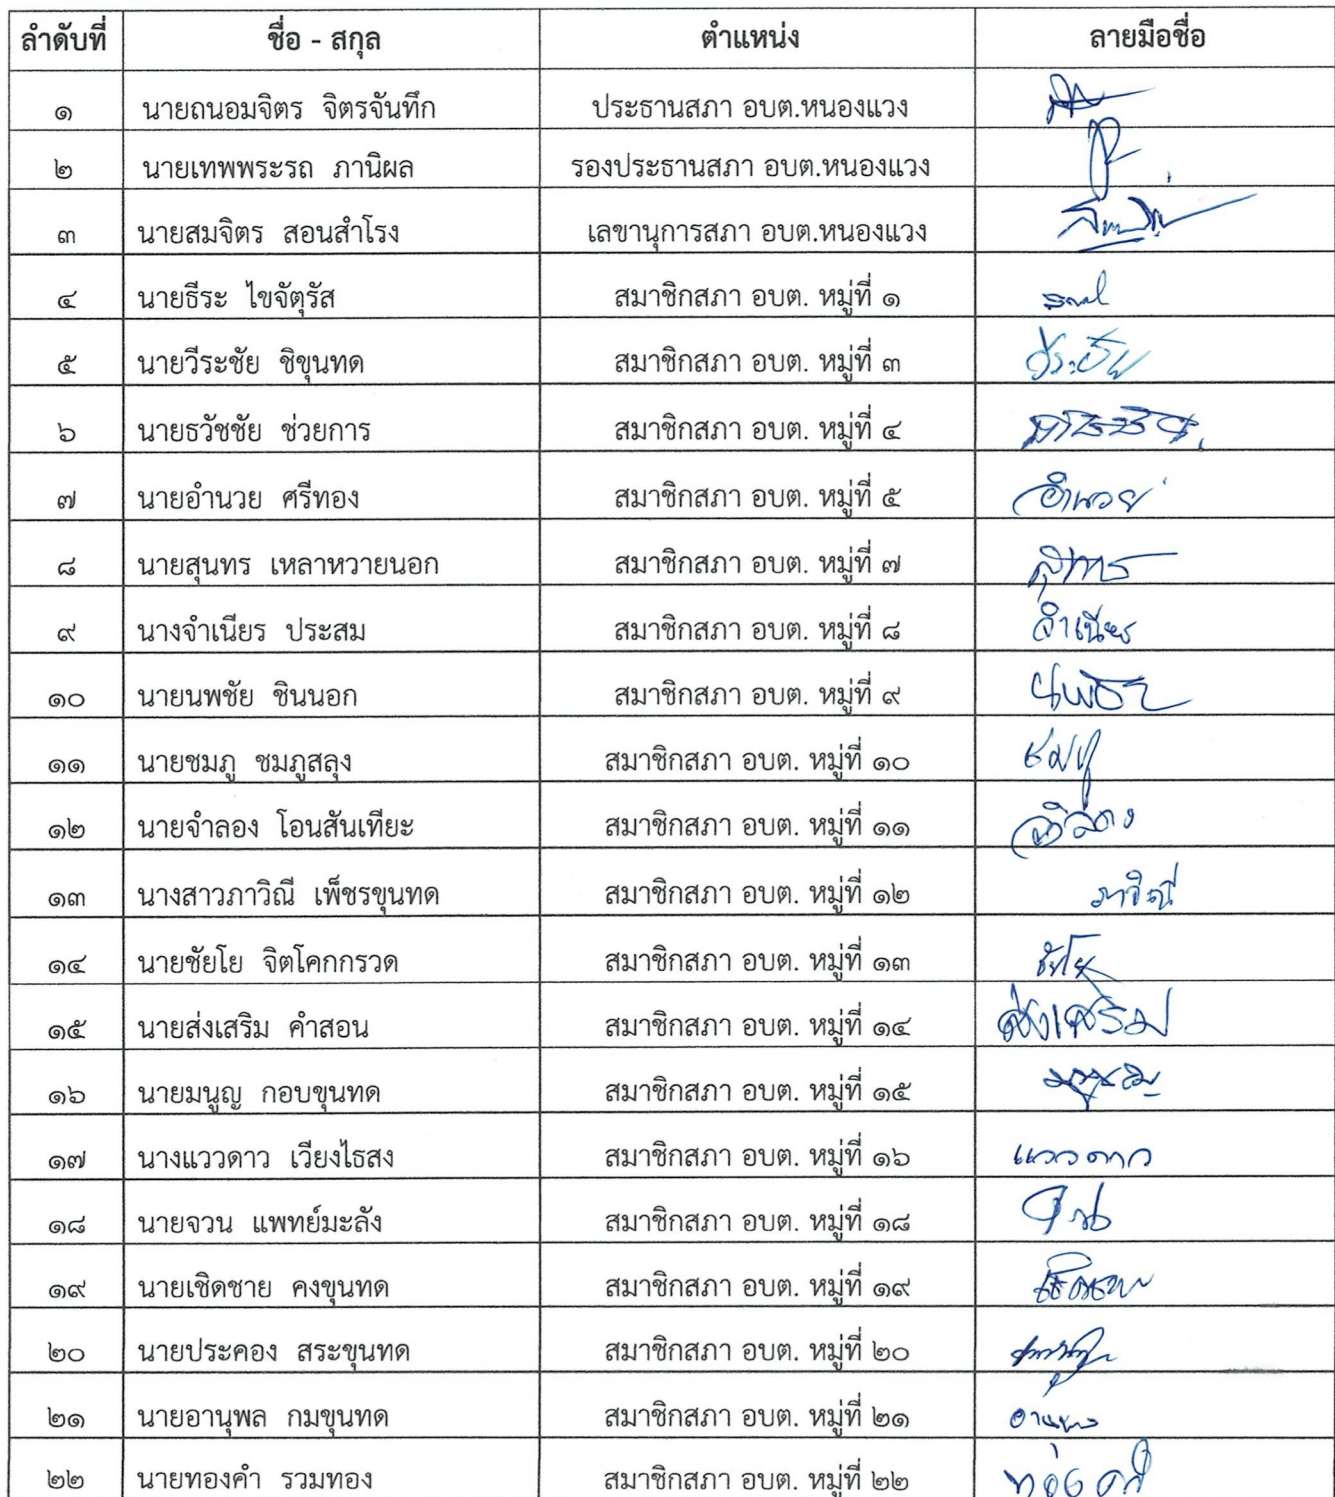 ลำดับที่ ชื่อ - สกุล ตำแหน่ง ลายมือชื่อ
๑ นายถนอมจิตร จิตรจันทึก ประธานสภา อบต.หนองแวง
๒ นายเทพพระรถ ภานิผล รองประธานสภา อบต.หนองแวง
๓ นายสมจิตร สอนสำโรง เลขานุการสภา อบต.หนองแวง
๔ นายธีระ ไขจัตุรัส สมาชิกสภา อบต. หมู่ที่ ๑
๕ นายวีระชัย ชิขุนทด สมาชิกสภา อบต. หมู่ที่ ๓ วีระชัย
๖ นายธวัชชัย ช่วยการ สมาชิกสภา อบต. หมู่ที่ ๔
๗ นายอำนวย ศรีทอง สมาชิกสภา อบต. หมู่ที่ ๕ อำนวย
๘ นายสุนทร เหลาหวายนอก สมาชิกสภา อบต. หมู่ที่ ๗
๙ นางจำเนียร ประสม สมาชิกสภา อบต. หมู่ที่ ๘ จำเนียร
๑๐ นายนพชัย ชินนอก สมาชิกสภา อบต. หมู่ที่ ๙
๑๑ นายชมภู ชมภูสลุง สมาชิกสภา อบต. หมู่ที่ ๑๐ ชมภู
๑๒ นายจำลอง โอนสันเทียะ สมาชิกสภา อบต. หมู่ที่ ๑๑ จำลอง
๑๓ นางสาวภาวิณี เพ็ชรขุนทด สมาชิกสภา อบต. หมู่ที่ ๑๒ ภาวิณี
๑๔ นายชัยโย จิตโคกกรวด สมาชิกสภา อบต. หมู่ที่ ๑๓ ชัยโย
๑๕ นายส่งเสริม คำสอน สมาชิกสภา อบต. หมู่ที่ ๑๔ ส่งเสริม
๑๖ นายมนูญ กอบขุนทด สมาชิกสภา อบต. หมู่ที่ ๑๕
๑๗ นางแววดาว เวียงไธสง สมาชิกสภา อบต. หมู่ที่ ๑๖ แววดาว
๑๘ นายจวน แพทย์มะลัง สมาชิกสภา อบต. หมู่ที่ ๑๘
๑๙ นายเชิดชาย คงขุนทด สมาชิกสภา อบต. หมู่ที่ ๑๙
๒๐ นายประคอง สระขุนทด สมาชิกสภา อบต. หมู่ที่ ๒๐
๒๑ นายอานุพล กมขุนทด สมาชิกสภา อบต. หมู่ที่ ๒๑
๒๒ นายทองคำ รวมทอง สมาชิกสภา อบต. หมู่ที่ ๒๒